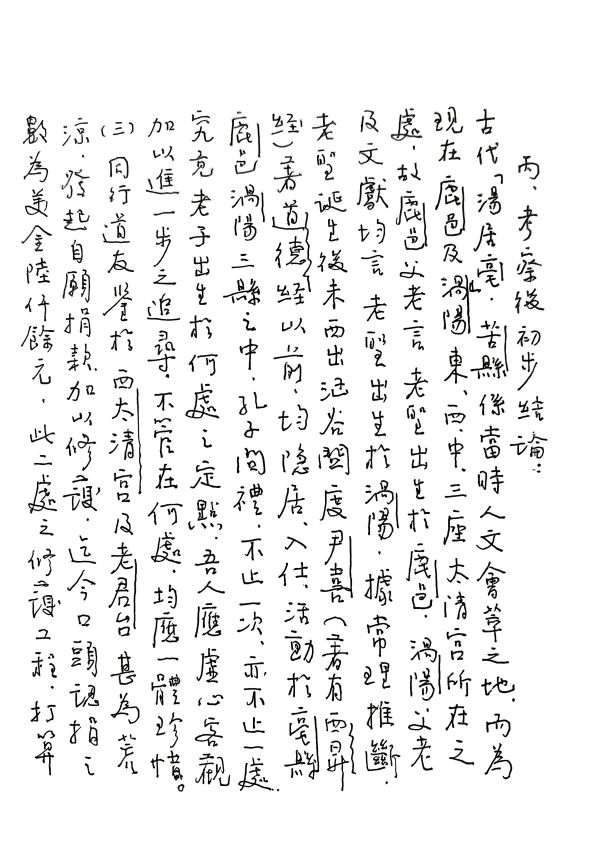 丙、考察後初步結論：
古代「湯居亳」，苦縣係當時人文會萃之地，而為
現在鹿邑及渦陽東、西、中、三座太清宮所在之
處，故鹿邑父老言老聖出生於鹿邑，渦陽父老
及文獻均言老聖出生於渦陽，據常理推斷，
老聖誕生後未西出函谷關度尹喜（著有西昇
經）著道德經以前，均隱居、入仕、活動於亳縣
鹿邑渦陽三縣之中，孔子問禮，不止一次，亦不止一處，
究竟老子出生於何處之定點，吾人應虛心客觀
加以進一步之追尋，不管在何處，均應一體珍惜。
(三)同行道友鑒於西太清宮及老君台甚為荒
涼，發起自願捐款加以修護，迄今口頭認捐之
數為美金陸仟餘元，此二處之修護工程，打算